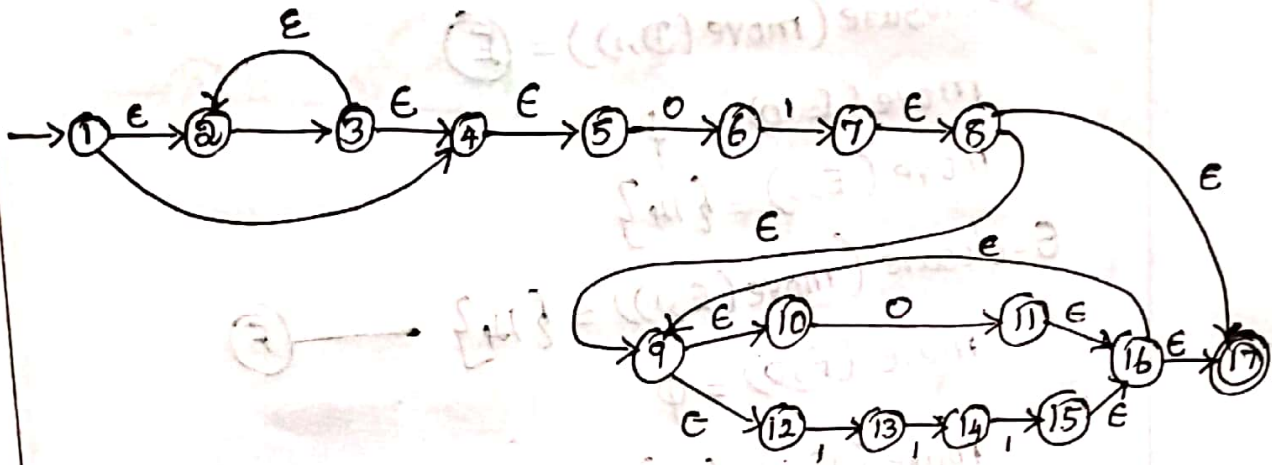 ε
1 ε 2 3 ε 4 ε 5 0 6 1 7 ε 8
ε
ε
ε
9 ε 10 0 11 ε 16 ε 17
ε 12 1 13 1 14 1 15 ε